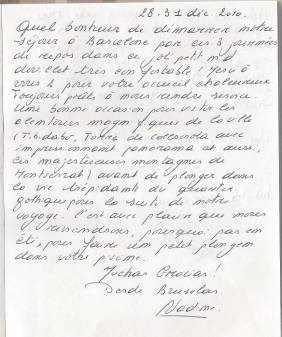 28-31 dic 2010.
Quel bonheur de démarrer notre
séjour à Barcelone par ces 3 journées
de repos dans ce joli petit nid
douillet très confortable ! Merci à
vous 2 pour votre accueil chaleureux
Toujours prêts à nous rendre service.
Une bonne occasion pour visiter les
alentours magnifiques de la ville
(Tibidabo, Torre de Collserola avec
impressionnant panorama et aussi,
les majestueuses montagnes de
Montserrat) avant de plonger dans
la vie trépidante du quartier
gothique pour la suite de notre
voyage. C'est avec plaisir que nous
reviendrons, pourquoi pas en
été, pour faire un petit plongeon
dans votre piscine.
Muchas Gracias !
Desde Bruselas.
Nadine.